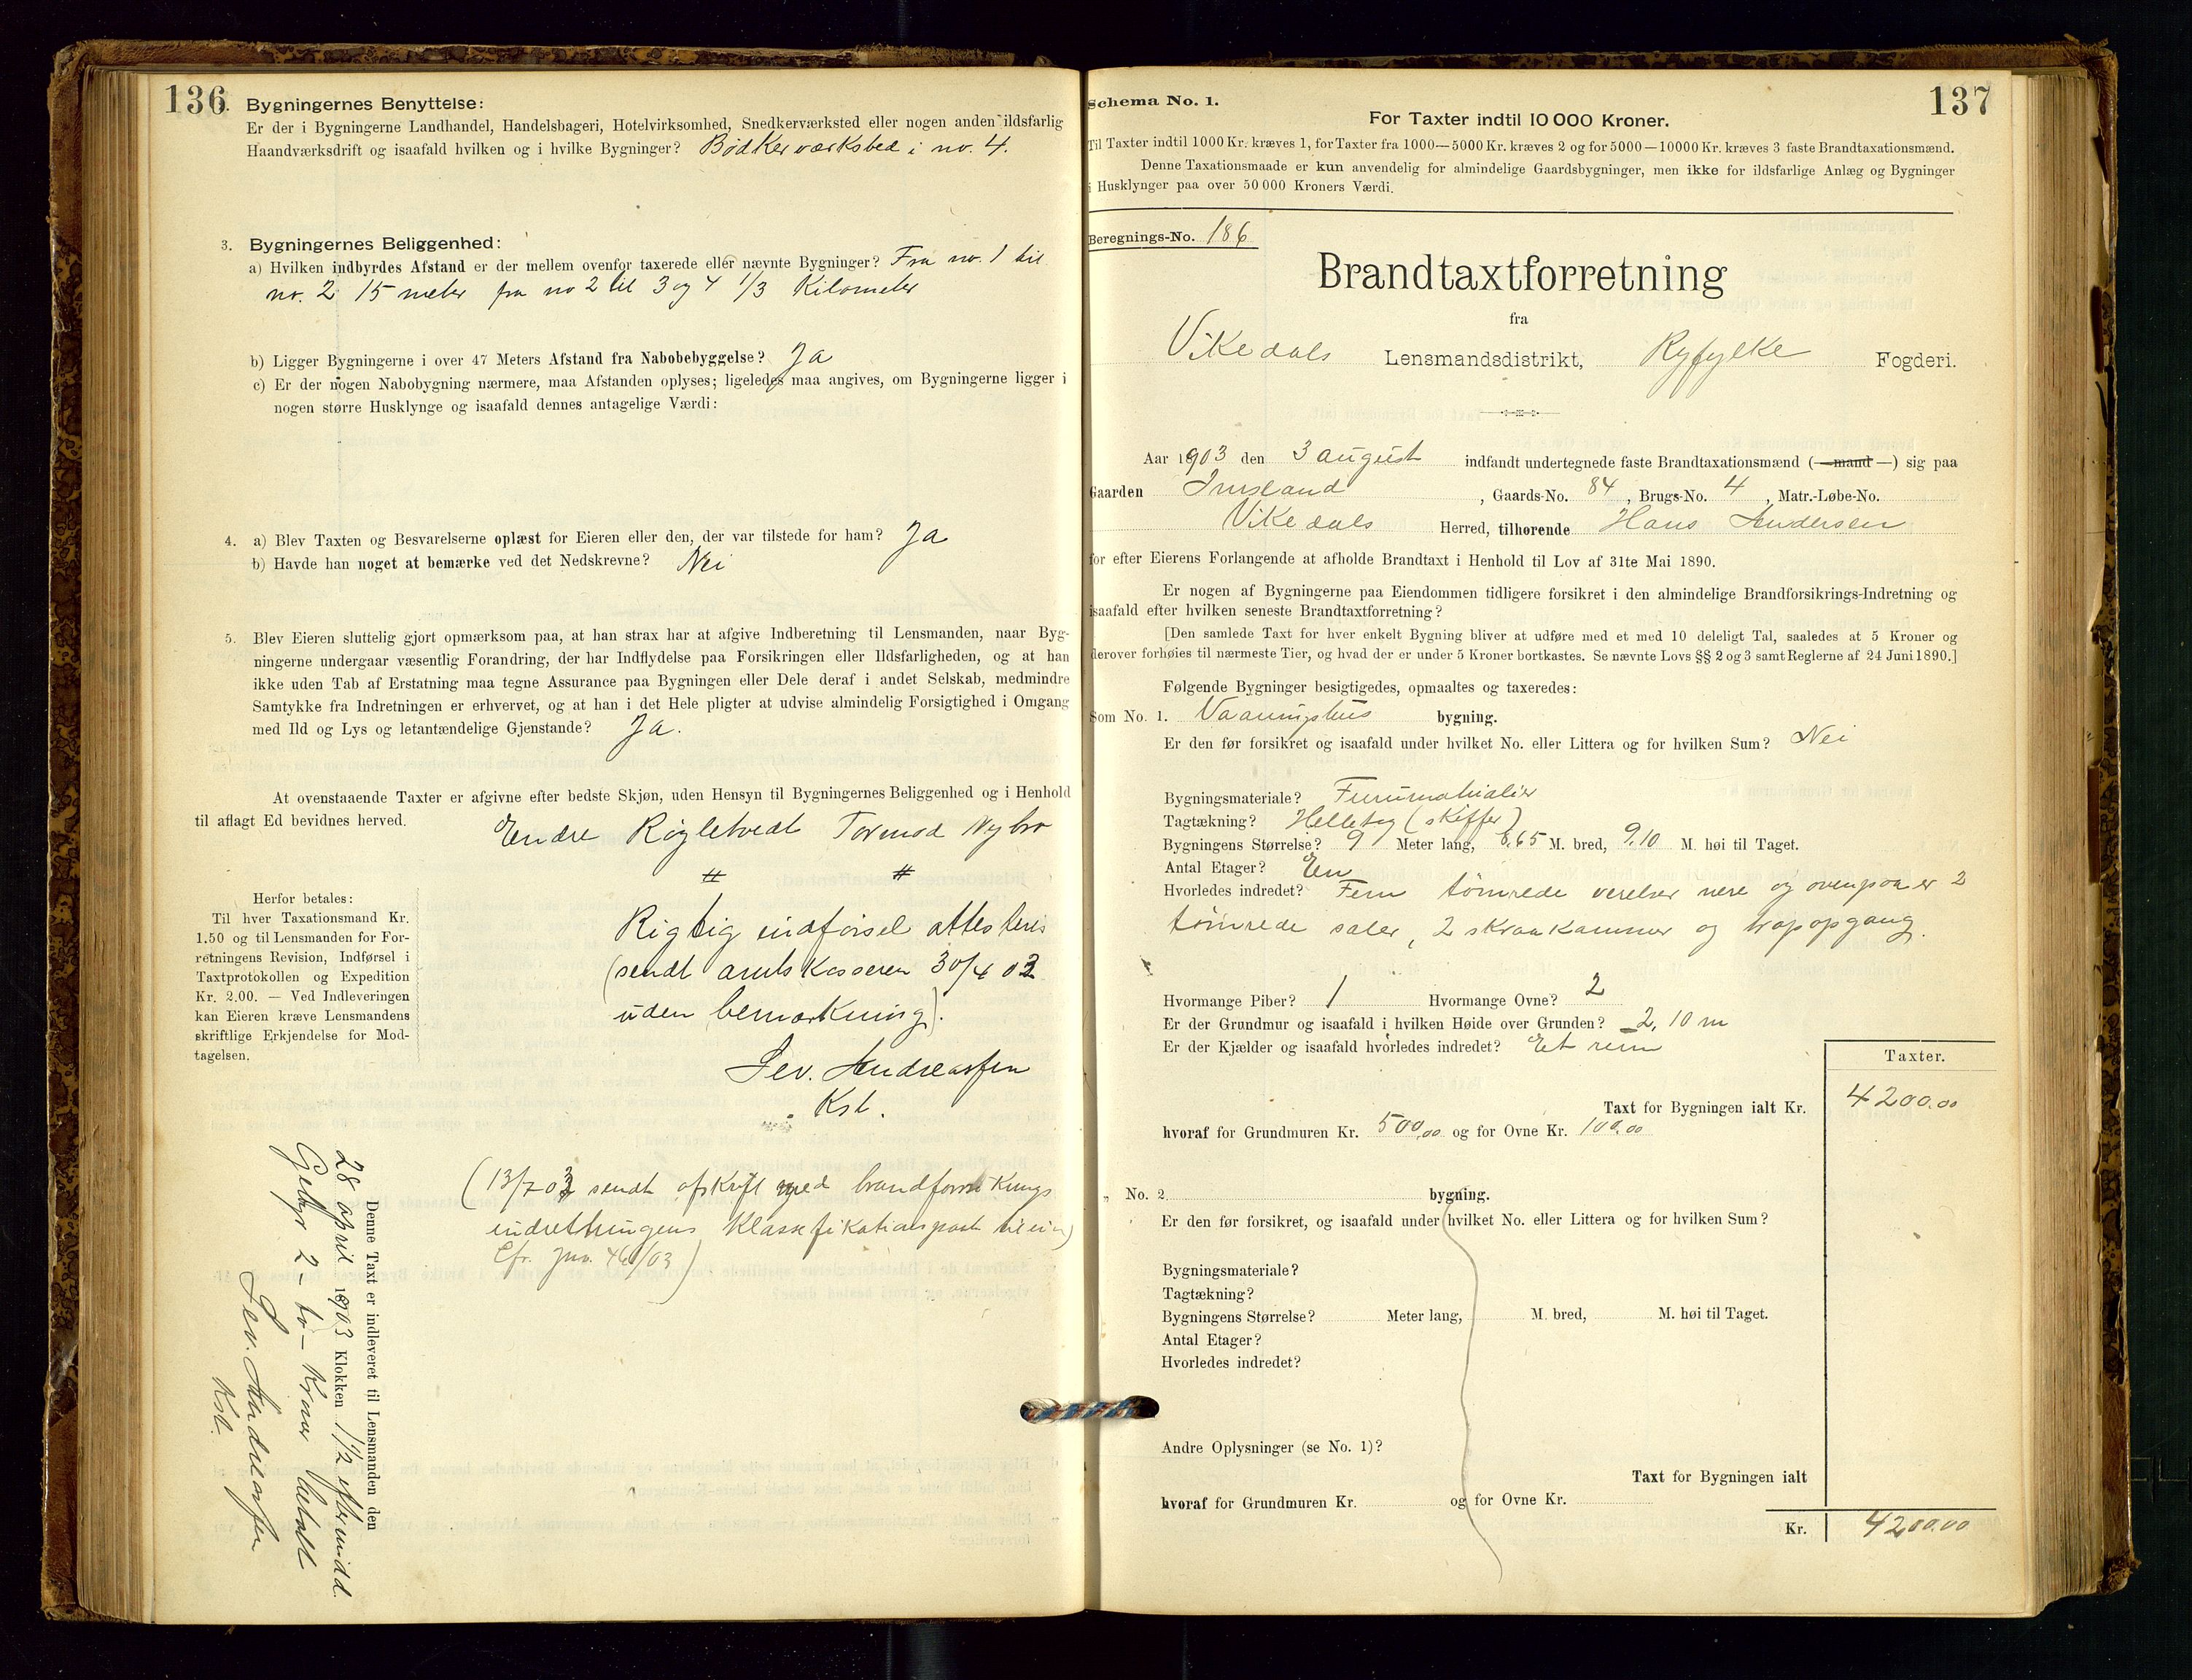 136.
Bygningernes Benyttelse:
Er der i Bygningerne Landhandel, Handelsbageri, Hotelvirksomhed, Snedkerværksted eller nogen anden ildsfarlig
Haandværksdrift og isaafald hvilken og i hvilke Bygninger? Bødkerværksted i no. 4.
3. Bygningernes Beliggenhed:
a) Hvilken indbyrdes Afstand er der mellem ovenfor taxerede eller nævnte Bygninger? Fra no. 1 til
no. 2 15 meter fra no 2 til 3 og 4 1/3 Kilometer
b) Ligger Bygningerne i over 47 Meters Afstand fra Nabobebyggelse? Ja
c) Er der nogen Nabobygning nærmere, maa Afstanden oplyses; ligeledes maa angives, om Bygningerne ligger i
nogen større Husklynge og isaafald dennes antagelige Værdi:
4. a) Blev Taxten og Besvarelserne oplæst for Eieren eller den, der var tilstede for ham? Ja
b) Havde han noget at bemærke ved det Nedskrevne? Nei
5. Blev Eieren sluttelig gjort opmærksom paa, at han strax har at afgive Indberetning til Lensmanden, naar Byg-
ningerne undergaar væsentlig Forandring, der har Indflydelse paa Forsikringen eller Ildsfarligheden, og at han
ikke uden Tab af Erstatning maa tegne Assurance paa Bygningen eller Dele deraf i andet Selskab, medmindre
Samtykke fra Indretningen er erhvervet, og at han i det Hele pligter at udvise almindelig Forsigtighed i Omgang
med Ild og Lys og letantændelige Gjenstande? Ja.
At ovenstaaende Taxter er afgivne efter bedste Skjøn, uden Hensyn til Bygningernes Beliggenhed og i Henhold
til aflagt Ed bevidnes herved.
Endre Røgletvedt Tormod Nybro
# #
Herfor betales:
Til hver Taxationsmand Kr.
1.50 og til Lensmanden for For-
retningens Revision, Indførsel i
Taxtprotokollen og Expedition
Kr. 2.00. — Ved Indleveringen
kan Eieren kræve Lensmandens
skriftlige Erkjendelse for Mod-
tagelsen.
Rigtig indførsel attesteres
(sendt amtskasseren 30/4 03
uden bemærkning).
Sev. Andreassen
Kst.
(13/7 03 sendt afskrift med brandforsikrings
indretningens Klassefikationspost til eier
Cfr. Jno. 46/03)
Denne Taxt er indleveret til Lensmanden den
28 april 1903 Klokken 1 1/2 eftermidd.
Gebyr 2 - to - Kroner betalt
Sev. Andreassen
Kst.
137
Schema No. 1.
For Taxter indtil 10 000 Kroner.
Til Taxter indtil 1000 Kr. kræves 1, for Taxter fra 1000—5000 Kr. kræves 2 og for 5000—10000 Kr. kræves 3 faste Brandtaxationsmænd.
Denne Taxationsmaade er kun anvendelig for almindelige Gaardsbygninger, men ikke for ildsfarlige Anlæg og Bygninger
i Husklynger paa over 50 000 Kroners Værdi.
Beregnings-No. 186
Brandtaxtforretning
fra
Vikedals Lensmandsdistrikt, Ryfylke Fogderi.
Aar 1903 den 3 august indfandt undertegnede faste Brandtaxationsmænd (—mand—) sig paa
Gaarden Imsland, Gaards-No. 84, Brugs-No. 4, Matr.-Løbe-No.
Vikedals Herred, tilhørende Hans Andersen
for efter Eierens Forlangende at afholde Brandtaxt i Henhold til Lov af 31te Mai 1890.
Er nogen af Bygningerne paa Eiendommen tidligere forsikret i den almindelige Brandforsikrings-Indretning og
isaafald efter hvilken seneste Brandtaxtforretning?
[Den samlede Taxt for hver enkelt Bygning bliver at udføre med et med 10 deleligt Tal, saaledes at 5 Kroner og
derover forhøies til nærmeste Tier, og hvad der er under 5 Kroner bortkastes. Se nævnte Lovs §§ 2 og 3 samt Reglerne af 24 Juni 1890.]
Følgende Bygninger besigtigedes, opmaaltes og taxeredes:
Som No. 1. Vaaningshus bygning.
Er den før forsikret og isaafald under hvilket No. eller Littera og for hvilken Sum? Nei
Bygningsmateriale? Furumatrialier
Tagtækning? Helletag (skiffer)
Bygningens Størrelse? 9 Meter lang, 6,65 M. bred, 9,10 M. høi til Taget.
Antal Etager? En
Hvorledes indredet? Fem tømrede verelser nere og ovenpaa er 2
tømrede saler, 2 skraakammer og trapopgang.
Hvormange Piber? 1 Hvormange Ovne? 2
Er der Grundmur og isaafald i hvilken Høide over Grunden? 2,10 m
Er der Kjælder og isaafald hvorledes indredet? Et rum
Taxter.
Taxt for Bygningen ialt Kr. 4200.00
hvoraf for Grundmuren Kr. 500,00 og for Ovne Kr. 100.00
„ No. 2 bygning.
Er den før forsikret, og isaafald under hvilket No. eller Littera og for hvilken Sum?
Bygningsmateriale?
Tagtækning?
Bygningens Størrelse? Meter lang, M. bred, M. høi til Taget.
Antal Etager?
Hvorledes indredet?
Andre Oplysninger (se No. 1)?
Taxt for Bygningen ialt
hvoraf for Grundmuren Kr. og for Ovne Kr.
Kr. 4200.00